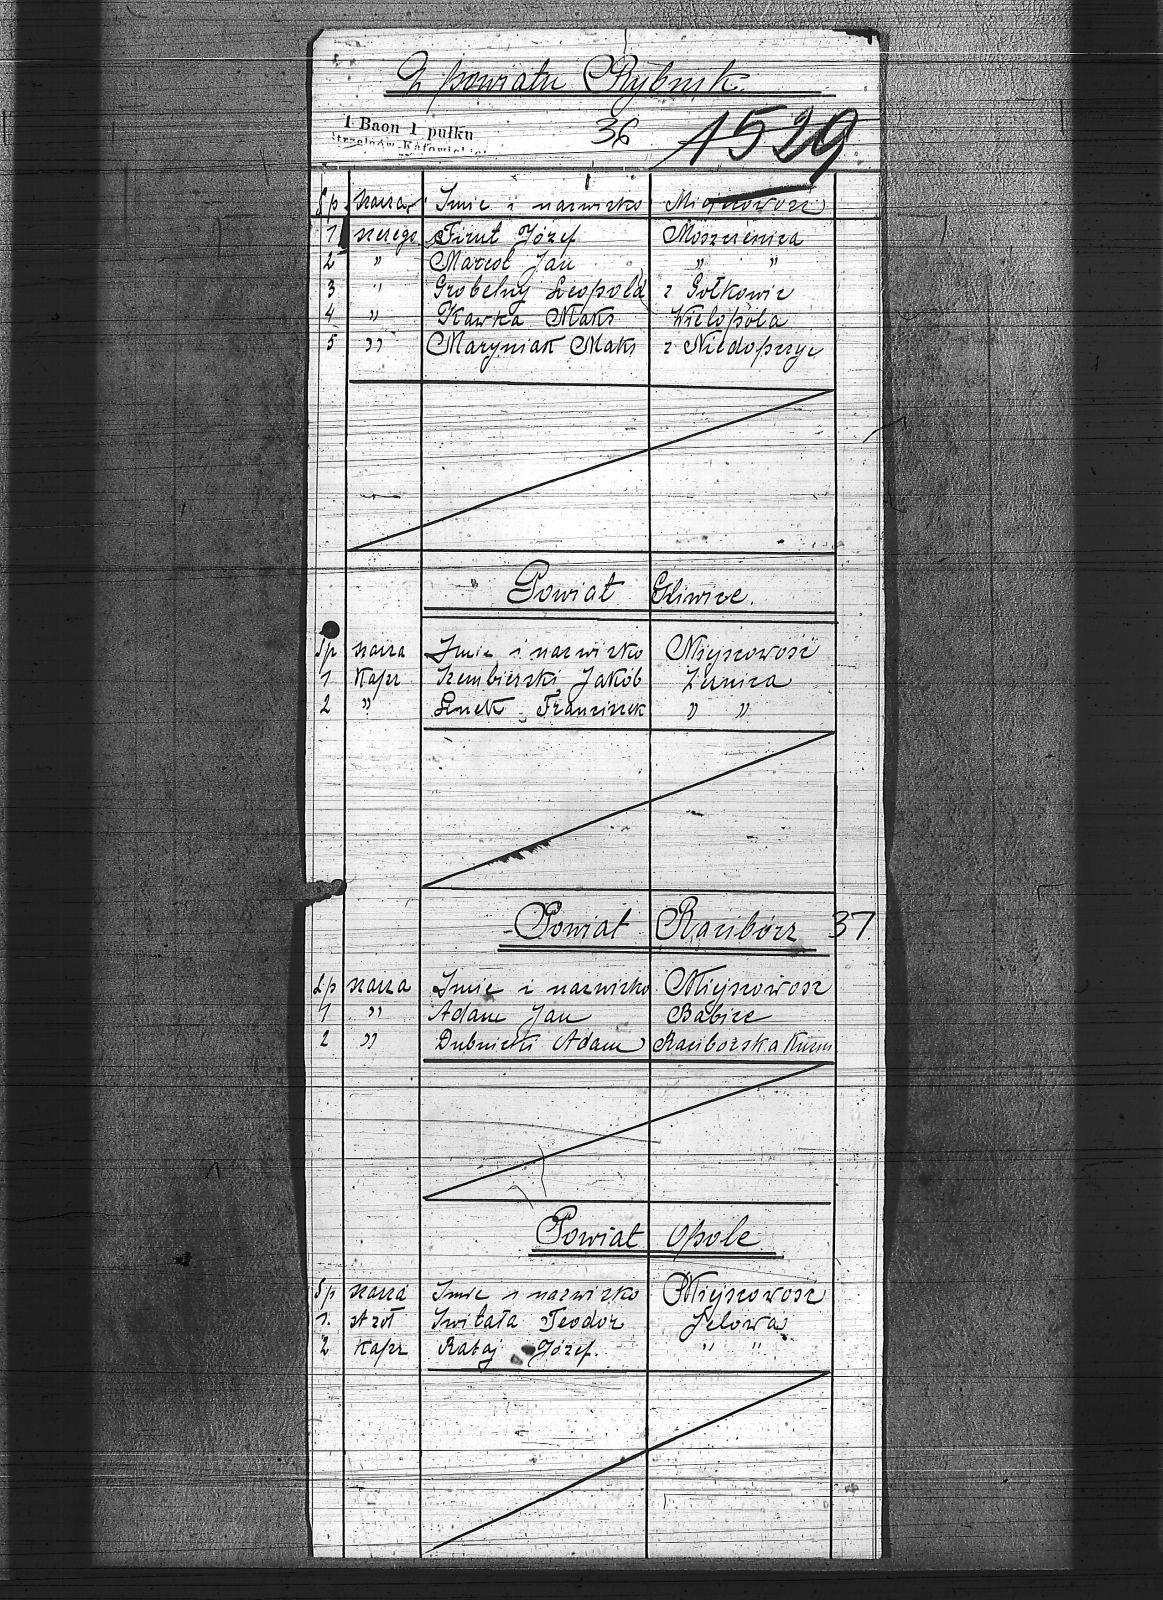 Z powiatu Rybnik
1 Baon 1 pułku
36 1529
Lp szarża Imie i nazwisko Miejscowosc
1 szereg Firut Józef Moszczenica
2 " Marcol Jan " "
3 " Grobelny Leopold z Gołkowic
4 " Kawka Maks Wielopola
5 " Maryniak Maks z
Powiat Gliwice.
Lp szarza Imie i nazwisko Miejscowość
1 Kapr Jakób Żernica
2 " Franciszek " "
Powiat Racibórz 37
Lp szarza Imie i nazwisko Miejscowosc
1 " Adam Jan Babice
2 " Adam Raciborska
Powiat Opole
Lp szarża Imie i nazwisko Miejscowosc
1. strzł Świtała Teodor Jełowa
2 Kapr Rataj Józef. " "